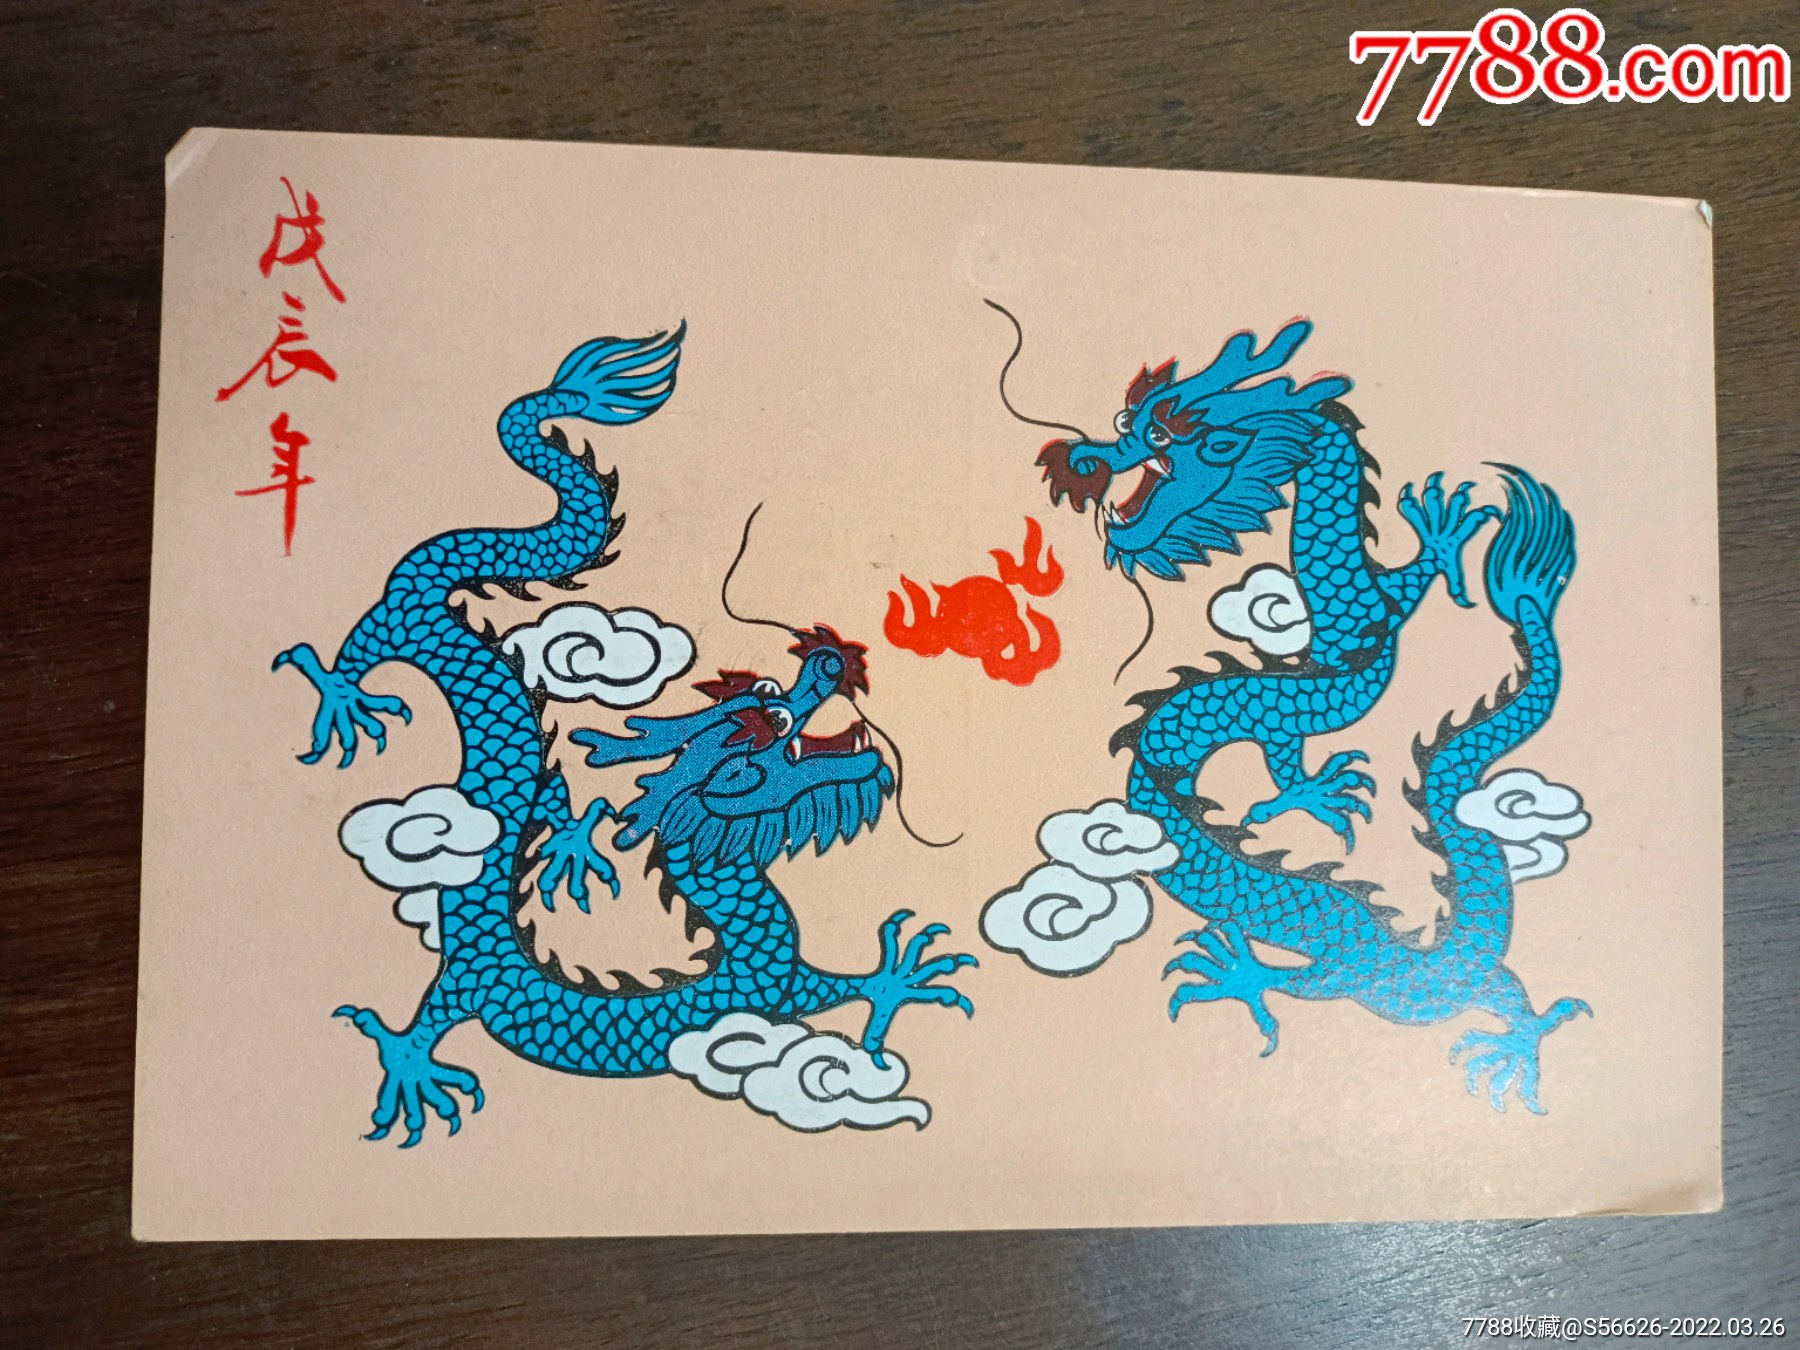 7788.com
戊辰年
7788收藏@S56626-2022.03.26